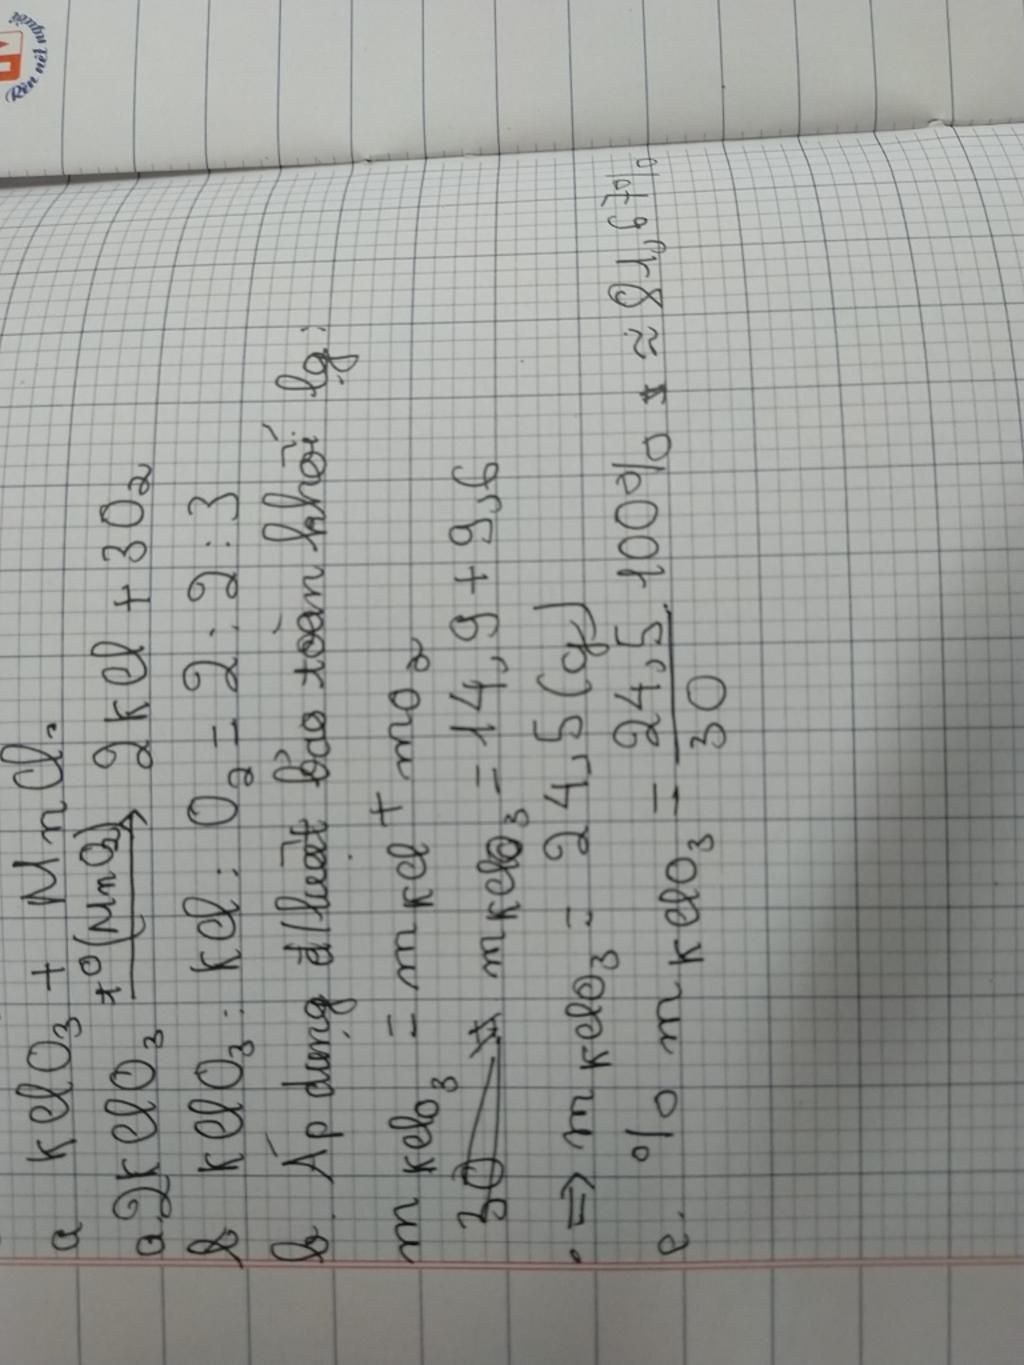 Rèn nét người
a KClO3 + MnCl.
a. 2KClO3 t°(MnO2) → 2KCl + 3O2
b KClO3 : KCl : O2 = 2 : 2 : 3
b. Áp dụng đ/luật bảo toàn khối lg:
m KClO3 = m KCl + mO2
30 m KClO3 = 14,9 + 9,6
=> m KClO3 = 24,5 (g)
c. % m KClO3 = 24,5 . 100% / 30 ≈ 81,67%